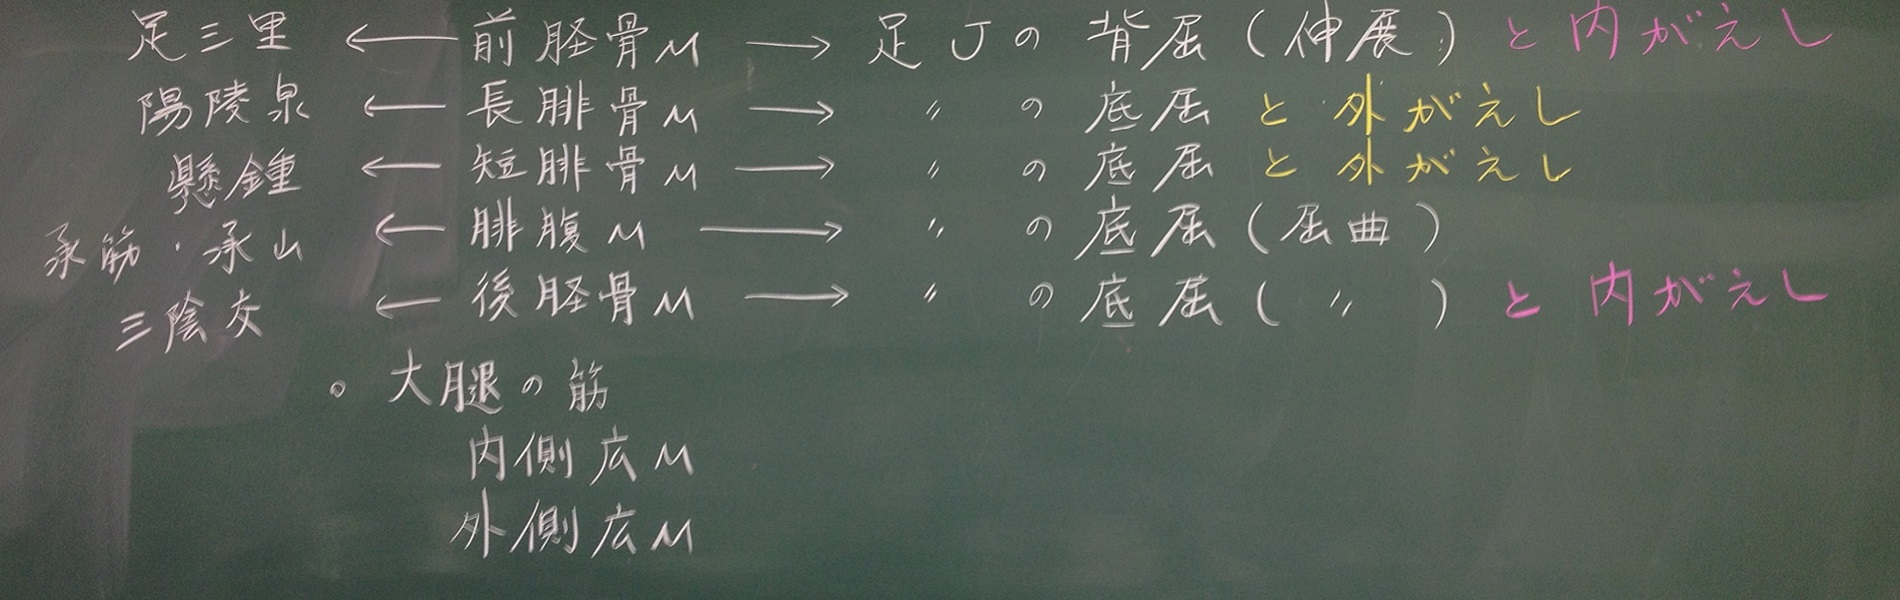 足三里 ← 前脛骨M → 足Jの背屈(伸展)と内がえし
陽陵泉 ← 長腓骨M → 〃の底屈と外がえし
懸鍾 ← 短腓骨M → 〃の底屈と外がえし
承筋・承山 ← 腓腹M → 〃の底屈(屈曲)
三陰交 ← 後脛骨M → 〃の底屈(〃)と内がえし
○大腿の筋
内側広M
外側広M